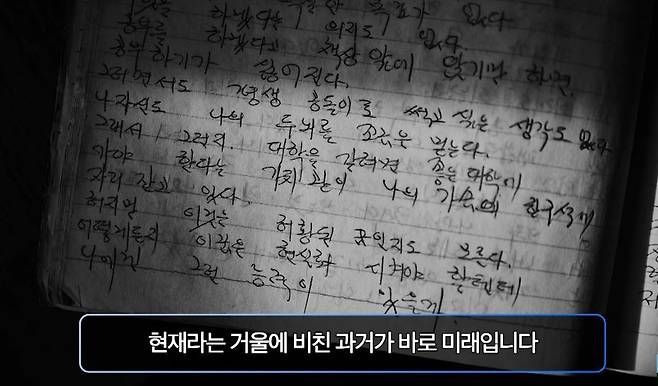 목표가 없다
공부를 하겠다는 의지도 없다.
공부를 하겠다고 책상 앞에 앉기만 하면
공부 하기가 싫어진다.
그러면서도 평생 공돌이로 썩고 싶은 생각도 없다
나 자신도 나의 두뇌를 조금은 믿는다.
그래서 그런지 대학을 갈려면 좋은 대학에
가야 한다는 가치관이 나의 가슴의 한구석에
자리 잡고 있다.
하지만 이것은 허황된 꿈인지도 모른다.
어떻게든지 이 꿈은 현실화 시켜야 할텐데
나에겐 그런 능력이
현재라는 거울에 비친 과거가 바로 미래입니다